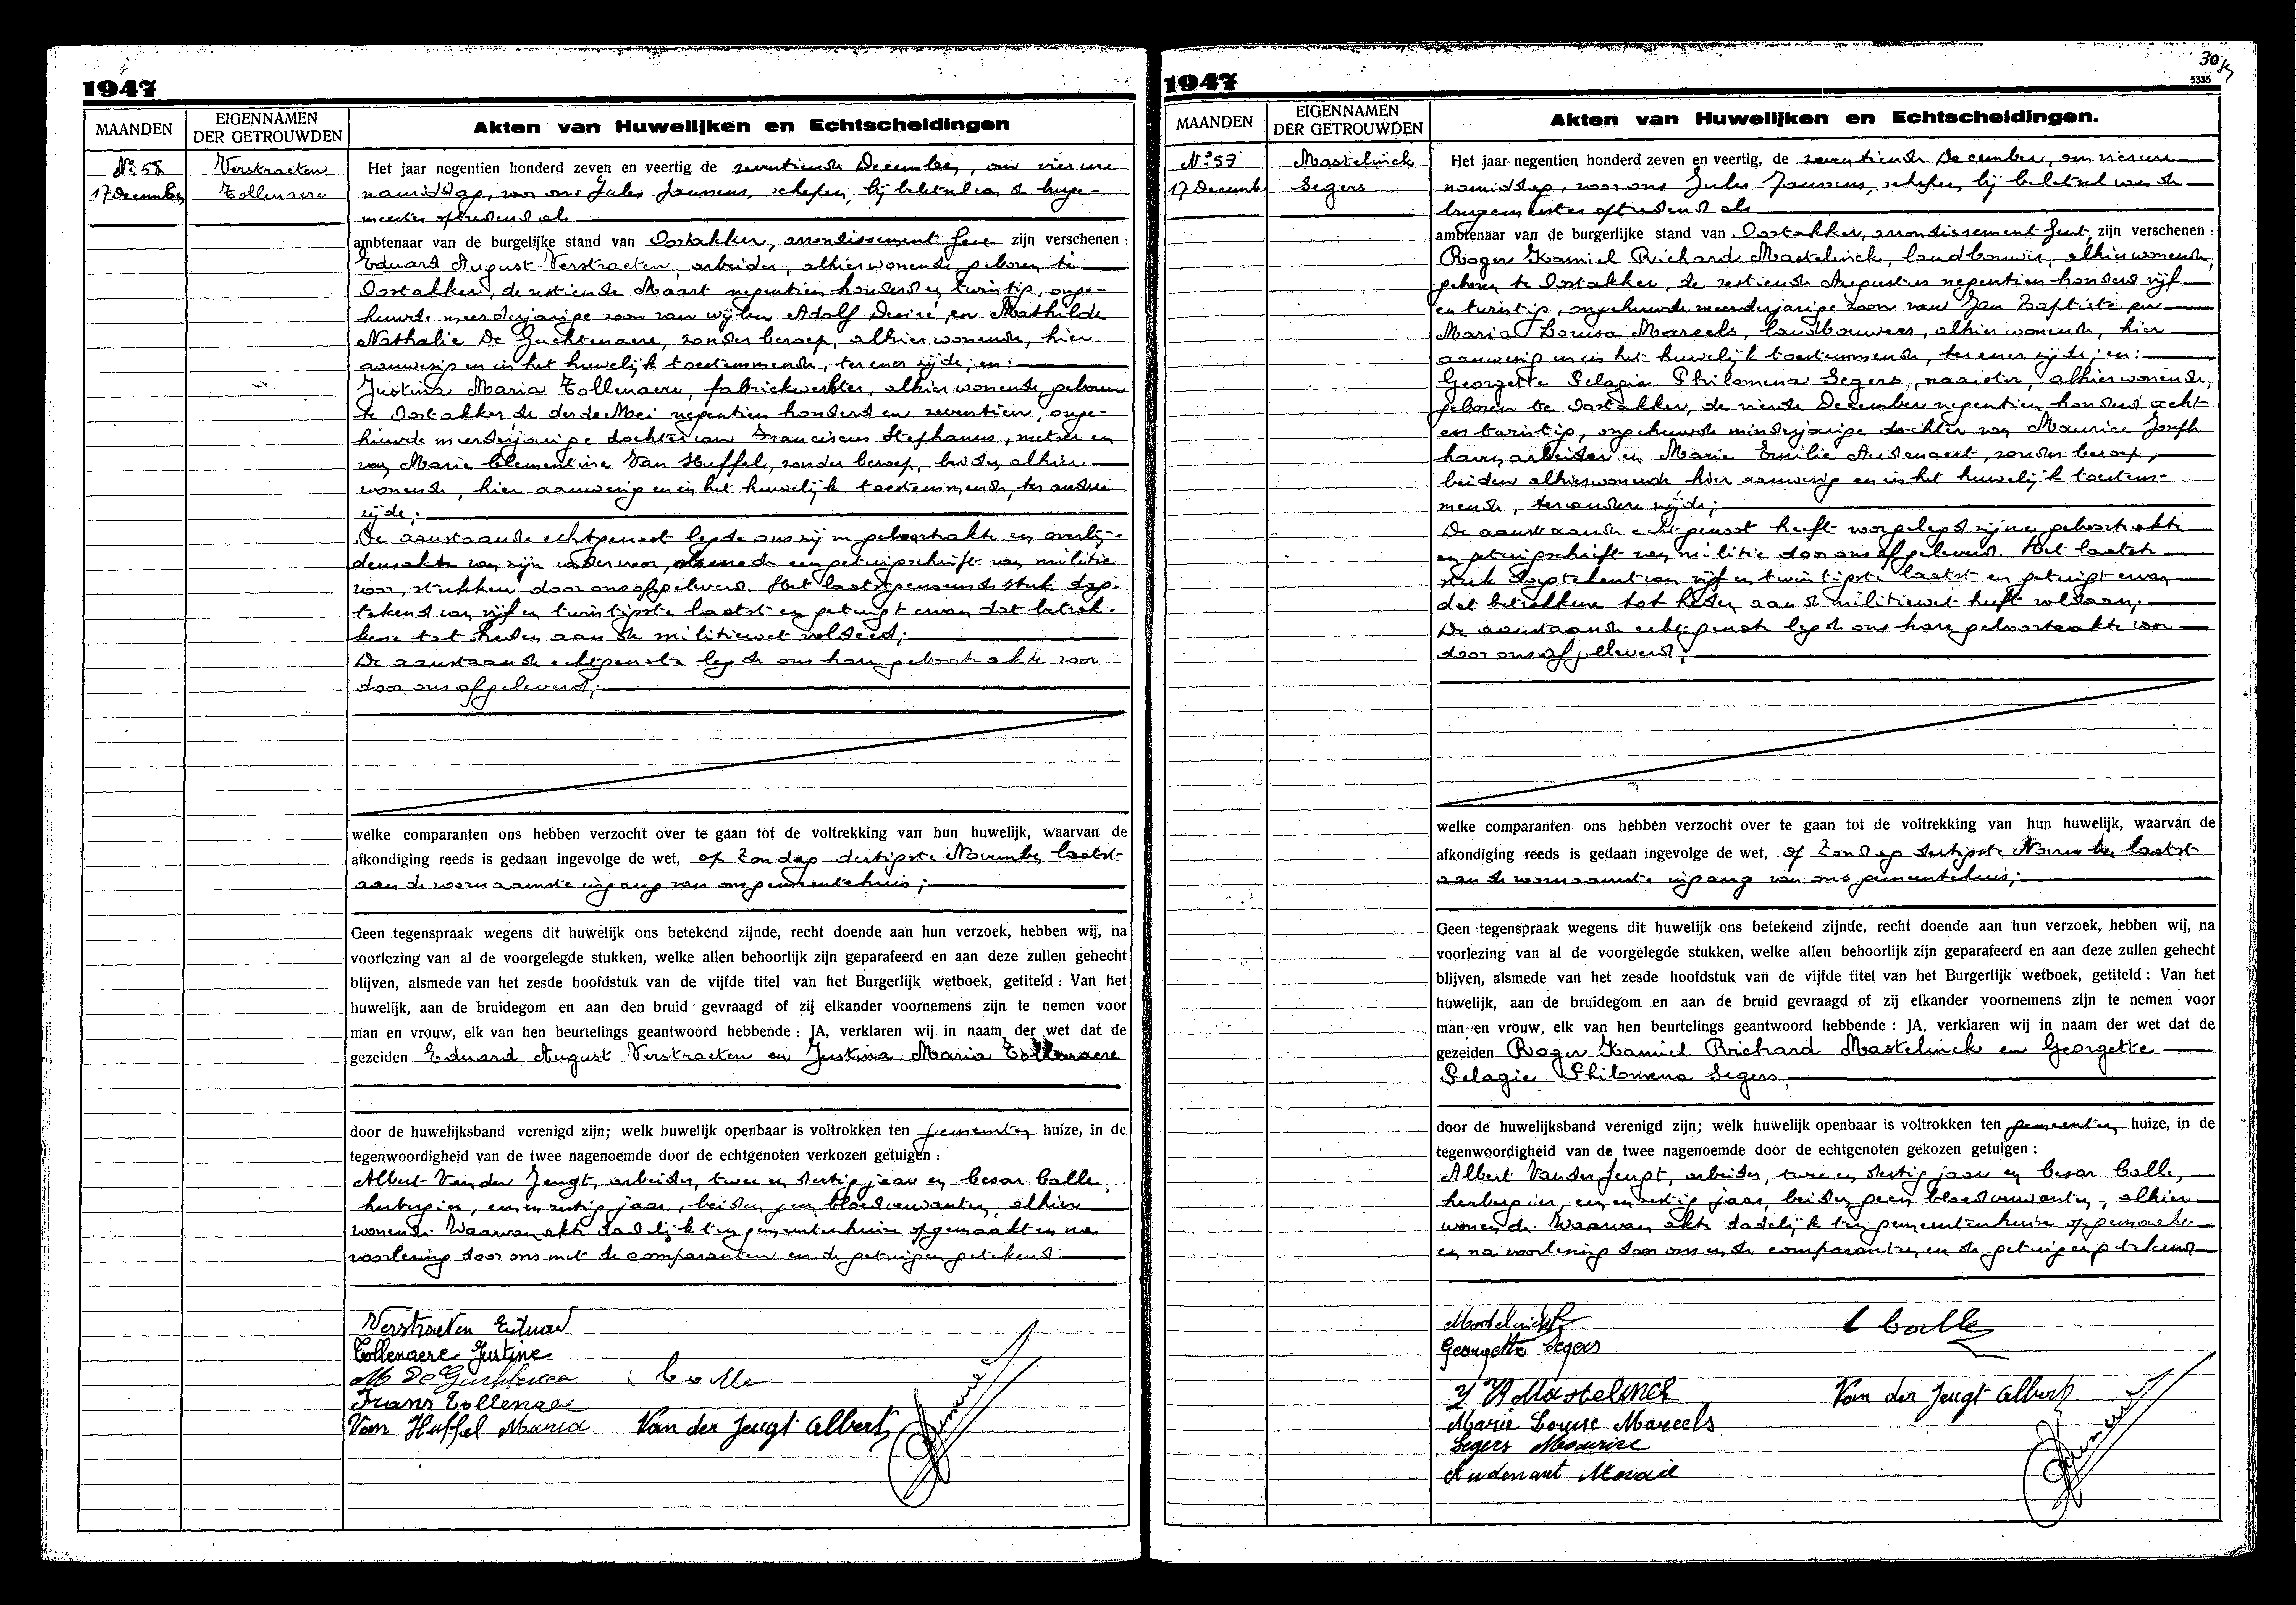 1947
MAANDEN
EIGENNAMEN
DER GETROUWDEN
Akten van Huwelijken en Echtscheidingen
N° 58
17 December
Verstraeten
Tollenaere
Het jaar negentien honderd zeven en veertig de zeventiende December, om vier ure
namiddag, voor ons Jules Janssens, schepen, bij beletsel van de burge-
meester optredend als
ambtenaar van de burgelijke stand van Oostakker, arrondissement Gent zijn verschenen :
Eduard August Verstraeten, arbeider, alhier wonende, geboren te
Oostakker, de zestiende Maart negentien honderd en twintig, onge-
huwde meerderjarige zoon van wijlen Adolf Desiré, en Mathilde
Nathalie De Guchtenaere, zonder beroep, alhier wonende, hier
aanwezig en in het huwelijk toestemmende, ter ener zijde; en:
Justina Maria Tollenaere, fabriekwerkster, alhier wonende, geboren
te Oostakker, de derde Mei negentien honderd en zeventien, onge-
huwde meerderjarige dochter van Franciscus Stephanus, metser en
van Marie Clementine Van Huffel, zonder beroep, beiden alhier
wonende, hier aanwezig en in het huwelijk toestemmende, ter andere
zijde;
De aanstaande echtgenoot legde ons zijn geboorteakte en overlij-
densakte van zijn vader voor, alsmede een getuigschrift van militie
voor, stukken door ons afgeleverd. Het laatstgenoemde stuk dag-
tekend van vijf en twintigste laatst en getuigt ervan dat betrok-
kene tot heden aan de militiewet voldeed;
De aanstaande echtgenote legde ons hare geboorteakte voor
door ons afgeleverd;
welke comparanten ons hebben verzocht over te gaan tot de voltrekking van hun huwelijk, waarvan de
afkondiging reeds is gedaan ingevolge de wet, op Zondag dertigste November laatst
aan de voornaamste ingang van ons gemeentehuis;
Geen tegenspraak wegens dit huwelijk ons betekend zijnde, recht doende aan hun verzoek, hebben wij, na
voorlezing van al de voorgelegde stukken, welke allen behoorlijk zijn geparafeerd en aan deze zullen gehecht
blijven, alsmede van het zesde hoofdstuk van de vijfde titel van het Burgerlijk wetboek, getiteld : Van het
huwelijk, aan de bruidegom en aan den bruid gevraagd of zij elkander voornemens zijn te nemen voor
man en vrouw, elk van hen beurtelings geantwoord hebbende : JA, verklaren wij in naam der wet dat de
gezeiden Eduard August Verstraeten en Justina Maria Tollenaere
door de huwelijksband verenigd zijn; welk huwelijk openbaar is voltrokken ten gemeenten huize, in de
tegenwoordigheid van de twee nagenoemde door de echtgenoten verkozen getuigen :
Albert Van der Jeugt, arbeider, twee en dertig jaar en Cesar Colle,
herbergier, een en zestig jaar, beiden geen bloedverwanten, alhier
wonende. Waarvan akte dadelijk ten gemeentenhuize opgemaakt en na
voorlezing door ons met de comparanten en de getuigen getekend
Verstraeten Eduard
Tollenaere Justine
Frans Tollenaere
Van Huffel Maria
C Colle
Van der Jeugt Albert
1947
5335
MAANDEN
EIGENNAMEN
DER GETROUWDEN
Akten van Huwelijken en Echtscheidingen.
N° 59
17 December
Mastelinck
Segers
Het jaar negentien honderd zeven en veertig, de zeventiende December, om vier ure
namiddag, voor ons Jules Janssens, schepen, bij beletsel van de
burgemeester optredend als
ambtenaar van de burgerlijke stand van Oostakker, arrondissement Gent, zijn verschenen :
Roger Kamiel Richard Mastelinck, landbouwer, alhier wonende,
geboren te Oostakker, de zestiende Augustus negentien honderd vijf
en twintig, ongehuwde meerderjarige zoon van Jan Baptiste en
Maria Louisa Mareels, landbouwers, alhier wonende, hier
aanwezig en in het huwelijk toestemmende, ter ener zijde; en:
Georgette Pelagie Philomena Segers, naaister, alhier wonende,
geboren te Oostakker, de vierde December negentien honderd acht
en twintig, ongehuwde minderjarige dochter van Maurice Joseph
havenarbeider en Marie Emilie Audenaert, zonder beroep,
beiden alhier wonende hier aanwezig en in het huwelijk toestem-
mende, ter andere zijde;
De aanstaande echtgenoot heeft voorgelegd zijne geboorteakte
en getuigschrift van militie door ons afgeleverd. Het laatste
stuk dagtekent van vijf en twintigste laatst en getuigt ervan
dat betrokkene tot heden aan de militiewet heeft voldaan;
De aanstaande echtgenote legde ons hare geboorteakte voor
door ons afgeleverd;
welke comparanten ons hebben verzocht over te gaan tot de voltrekking van hun huwelijk, waarvan de
afkondiging reeds is gedaan ingevolge de wet, op Zondag dertigste November laatst
aan de voornaamste ingang van ons gemeentehuis;
Geen tegenspraak wegens dit huwelijk ons betekend zijnde, recht doende aan hun verzoek, hebben wij, na
voorlezing van al de voorgelegde stukken, welke allen behoorlijk zijn geparafeerd en aan deze zullen gehecht
blijven, alsmede van het zesde hoofdstuk van de vijfde titel van het Burgerlijk wetboek, getiteld : Van het
huwelijk, aan de bruidegom en aan de bruid gevraagd of zij elkander voornemens zijn te nemen voor
man en vrouw, elk van hen beurtelings geantwoord hebbende : JA, verklaren wij in naam der wet dat de
gezeiden Roger Kamiel Richard Mastelinck en Georgette
Pelagie Philomena Segers,
door de huwelijksband verenigd zijn; welk huwelijk openbaar is voltrokken ten gemeenten huize, in de
tegenwoordigheid van de twee nagenoemde door de echtgenoten gekozen getuigen :
Albert Van der Jeugt, arbeider, twee en dertig jaar en Cesar Colle,
herbergier, een en zestig jaar, beiden geen bloedverwanten, alhier
wonende. Waarvan akte dadelijk ten gemeentenhuize opgemaakt
en na voorlezing door ons en de comparanten en de getuigen getekend
Mastelinck R
Georgette Segers
Mastelinck
Marie Louise Mareels
Segers Maurice
Audenaert Marie
C Colle
Van der Jeugt Albert